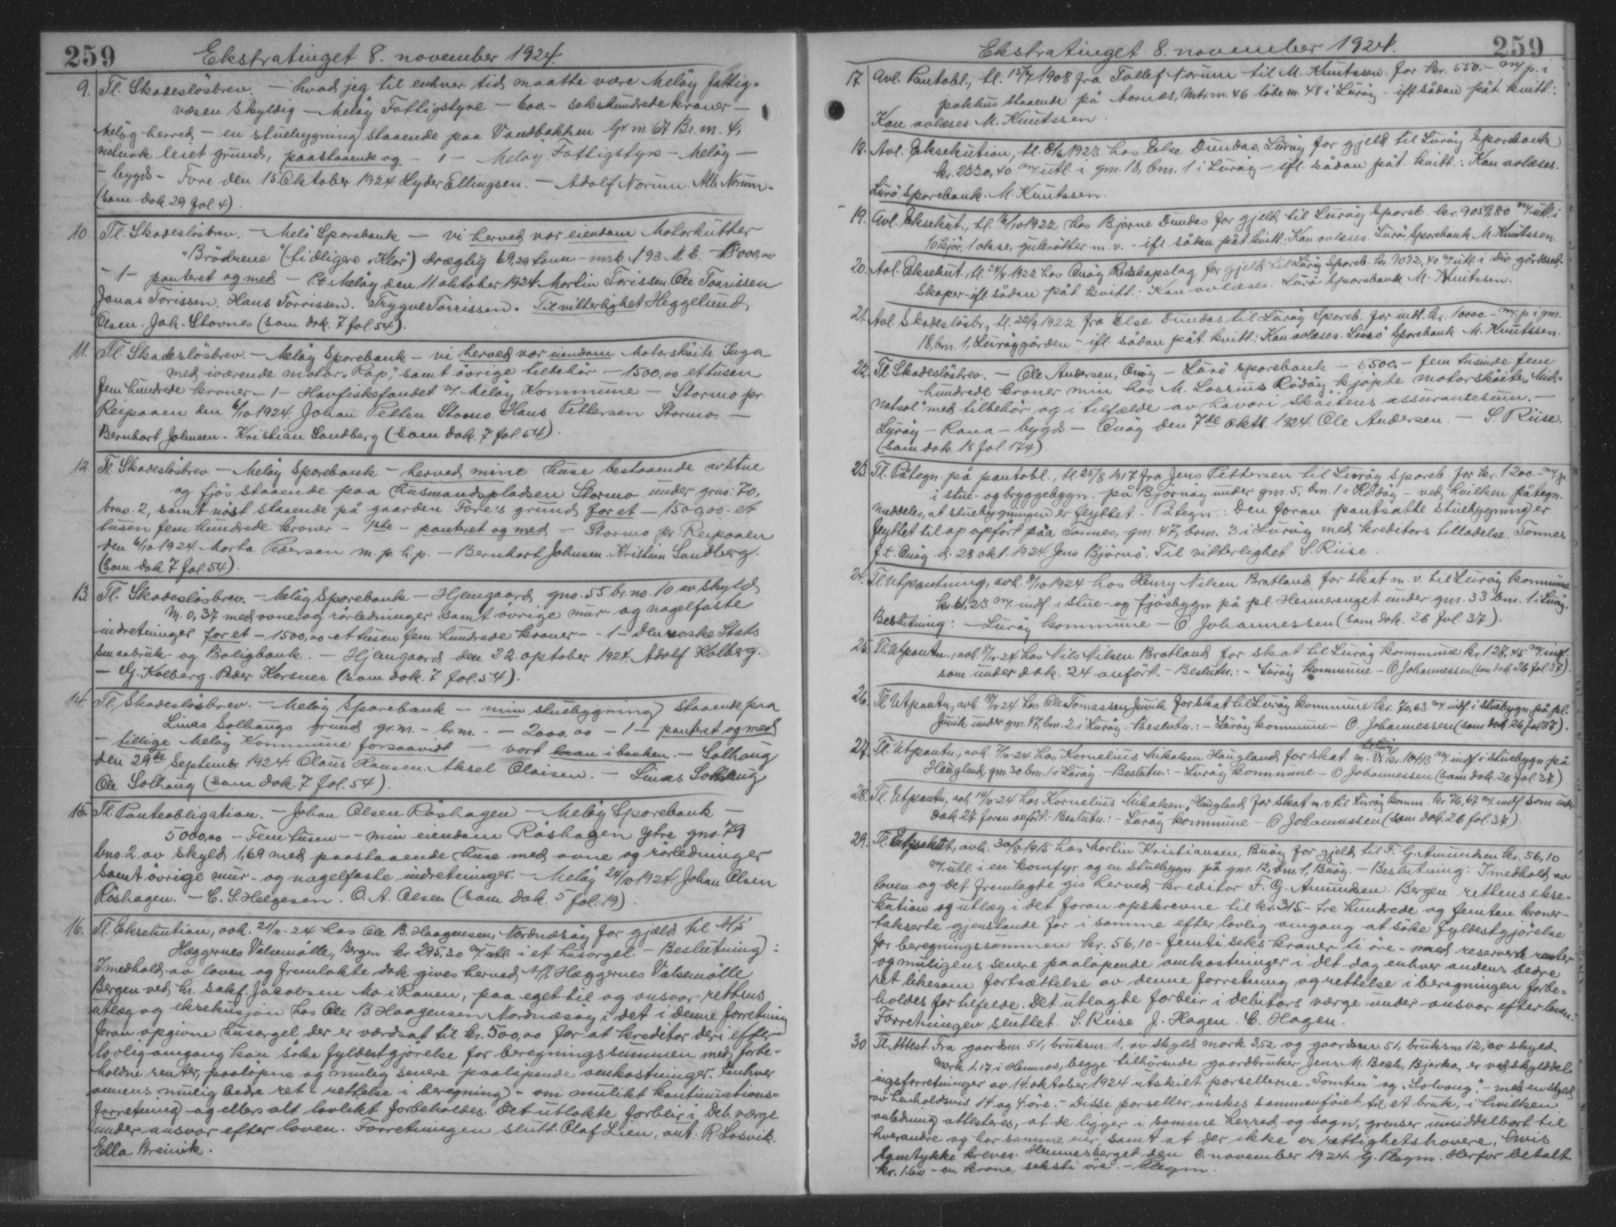 259 Ekstratinget 8. november 1924.
9. Tl. Skadeslösbrev. — hvad jeg til enhver tid maatte være Melöy fattig-
væsen skyldig — Melöy Fattigstyre — 600.- sekshundrede kroner —
Melöy herred — en stuebygning staaende paa Vandbakken Gr. nr. 67 Br. nr. 4,
leiet grund, paastaaende og — 1 — Melöy Fattigstyre — Melöy —
- bygd - Fore den 15 Oktober 1924 Lyder Ellingsen. — Adolf Norum. Alb. Norum.
(som dok 29 fol. 4).
10. Tl. Skadeslösbrev. — Melö Sparebank — vi herved vor eiendom Motorkutter
"Brödrene" (tidligere "Klar") dræglig 69,29 tonn - mrk. N 93 M.E. — 18000,00
— 1 — pantret og med — p.t. Melöy den 11 oktober 1924 Morten Torissen Ole Toarissen
Jonas Torissen. Hans Torrissen. Trygve Torrissen. Til vitterlighet Heggelund
Olsen. Joh. Stovnes (som dok. 7 fol 54).
11. Tl. Skadeslösbrev. — Melöy Sparebank — vi herved vor eiendom Motorsköite Inga
med iværende motor "Rap", samt övrige tilbehör — 1500,00 ettusen
fem hundrede kroner — 1 — Havfiskefondet v/ Melöy Kommune — Stormo pr.
Reipaaen den 6/10 1924. Johan Petter Stormo. Hans Pettersen Stormo. —
Bernhart Johnsen. Kristian Sandberg (som dok. 7 fol 54).
12. Tl. Skadeslösbrev — Melöy Sparebank — herved mine huse bestaaende av stue
og fjös staaende paa husmandspladsen Stormo under gno. 70,
bno. 2, samt nöst staaende på gaarden Fore's grund for et — 1500,00 et
tusen fem hundrede kroner — 1ste — pantret og med — Stormo pr. Reipaaen
den 6/10 1924 Marta Pedersen m. p. h. p. — Bernhart Johnsen. Kristian Sandberg.
(som dok 7 fol 54).
13. Tl. Skadeslösbrev. — Melöy Sparebank — Hjemgaard gno. 55 br. no. 10 av skyld
M. 0,37 med ovne og rörledninger samt övrige mur- og nagelfaste
indretninger for et — 1500,00 et tusen fem hundrede kroner — 1 — Den norske Stats
Smaabruk- og Boligbank. — Hjemgaard den 22. oktober 1924. Adolf Kolberg.
— Kolberg. Peder Korsnes (som dok. 7 fol. 54).
14. Tl. Skadeslösbrev. — Melöy Sparebank — min stuebygning staaende paa
Linas Solhaugs grund gr. nr. - br. nr. — 2000.00 — 1 — pantret og med
— tillige Melöy Kommune forsaavidt — vort laan i banken. — Solhaug
den 29de September 1924. Claus Hansen. Aksel Olaisen. — Linas Solhaug
Ole Solhaug (som dok. 7 fol. 54).
15. Tl. Panteobligation. — Johan Olsen Röshagen — Melöy Sparebank —
5000,00 — Fem tusen — min eiendom Röshagen Ytre gno. 79
bno. 2 av skyld 1,69 med paastaaende huse med ovne og rörledninger
samt övrige mur- og nagelfaste indretninger. — Melöy 24/10 1924. Johan Olsen
Röshagen. — C. S. Helgesen. O. A. Olsen (som dok. 5 fol. 19).
16. Tl. Eksekution, avh. 21/10-24 hos Ole B. Haagensen, Nordnæsöy for gjæld til A/S
Hæggernes Valsemölle, Bergen kr. 295.30 m/ utl. i et husorgel — Beslutning:
I medhold av loven og fremlakte dok. gives herved A/S. Hæggernes Valsemölle
Bergen ved hr. sakf. Jacobsen Mo i Ranen, paa eget til og ansvar, rettens
utlæg og eksekusjon hos Ole B. Haagensen Nordnæsöy i det i denne forretning
foran opgivne husorgel, der er værdsat til kr. 500,00 for at kreditor deri efter
lovlig omgang kan söke fyldestgjörelse for beregningssummen med forbe-
holdne renter, paalöpne og mulig senere paalöpende omkostninger. Enhver
annens mulig bedre ret — rettelse i beregning — om mulikt kontinuations-
forretning — og ellers alt lovlikt forbeholdes. Det utlakte forblir i Deb. værge
under ansvar efter loven. Forretningen slutt. Olaf Lien, aut. R. Losvik.
Ella Breivik.
Ekstratinget 8. november 1924. 259
17. Avl. Pantobl., tl. 15/7 1908 fra Tollef Norum til M. Knutssen for kr. 550.- m/ p. i
pakhus staaende på Aarnes, Mtr. nr. 46 löbe nr. 48 i Luröy - ift. sådan påt. kvitt.:
Kan avlæses M. Knutssen.
18. Avl. Eksekution, tl. 8/6 1923 hos Else Dundas, Luröy for gjeld til Luröy Sparebank
kr. 2330,40 m/ utl. i gnr. 18, bnr. 1 i Luröy — ift. sådan påt. kvitt.: Kan avlæses.
Lurö Sparebank. M. Knutssen.
19. Avl. Eksekut., tl. 12/10 1922 hos Bjarne Dundas for gjeld til Luröy Spareb. kr. 9059,80 m/ utl. i
10 kjör, 1 okse, gulrötter m. v. - ift. sådan påt. kvitt: Kan avlæses. Lurö Sparebank M. Knutssen.
20. Avl. Eksekut., tl. 24/11 1922 hos Onöy Redskapslag for gjeld til Luröy Spareb. kr. 9032,40 m/ utl. i div. gårdsred-
skaper - ift. sådan påt. kvitt: Kan avlæses. Lurö Sparebank M. Knutssen.
21. Avl. Skadeslösbr., tl. 22/9 1922 fra Else Dundas til Luröy Spareb. for intl. kr. 10000.- m/ p. i gnr.
18, bnr. 1, Luröygården - ift. sådan påt. kvitt: Kan avlæses. Lurö Sparebank M. Knutssen.
22. Tl. Skadeslösbrev. — Ole Andersen, Onöy — Lurö Sparebank — 5500.- fem tusinde fem
hundrede kroner min hos M. Lossius Rödöy kjöpte motorsköite "Mid-
natsol" med tilbehör og i tilfælde av havari sköitens assurancesum. —
Luröy - Rana - bygd - Onöy den 7de oktbr. 1924. Ole Andersen. — S. Riise.
(som dok. 18 fol 174)
23. Tl. Påtegn. på pantobl., tl. 25/8 1917 fra Jens Pettersen til Luröy Spareb. for kr. 1200.- m/ p.
i stue- og bryggebygn. på Bjørnöy under gnr. 5, bnr. 1 i Rödöy — ved hvilken påtegn.
meddeles, at stuebygningen er flyttet. — Påtegn: Den foran pantsatte stuebygning er
flyttet til og opfört på Tonnes, gnr. 47, bnr. 3 i Luröy med kreditors tilladelse. Tonnes
p.t. Onöy d. 28 okt 1924. Jens Björnö. Til vitterlighet S. Riise.
24. Tl. Utpantning, avh. 9/10 1924 hos Henry Nilsen Bratland for skat m. v. til Luröy kommune
kr. 61.23 m/ indf. i stue- og fjösbygn. på pl. Heimerenget under gnr. 33 bnr. 1 i Luröy.
Beslutning: — Luröy kommune — O Johannessen (som dok. 26 fol. 37).
25. Tl. Utpantn., avh. 9/10-24 hos Nils Nilsen Bratland for skat til Luröy kommune kr. 127.45 m/ indf.
som under dok. 24 anfört. - Beslutn.: - Luröy kommune - O Johannessen (som dok. 26 fol. 37).
26. Tl. Utpantn., avh 14/10 24 hos Ole Tomassen Juvik for skat til Luröy kommune kr. 70,63 m/ indf. i stuebygn. på pl.
Juvik under gnr. 17 bnr. 2 i Luröy. Beslutn.: - Luröy kommune - O Johannessen (som dok 26 fol 37).
27. Tl. Utpantn., avh. 9/10-24 hos Kornelius Mikalsen Haugland for skat m. v. til Luröy kr. 104,13 m/ indf. i stuebygn. på
Haugland gnr. 30 bnr. 1 i Luröy. - Beslutn.: - Luröy kommune - O Johannessen (som dok. 26 fol 37)
28. Tl. Utpantn., avh. 14/10-24 hos Kornelius Mikalsen, Haugland for skat m. v. til Luröy komm. kr. 76,67 m/ indf. som under
dok 27 foran anfört. - Beslutn.: - Luröy kommune - O Johannessen (som dok. 26 fol. 37).
29. Tl. Eksekut, avh. 30/8 1915 hos Martin Kristiansen, Buöy for gjeld til F. G. Amundsen kr. 56,10
m/ utl. i en komfyr og en stuebygn. på gnr. 12, bnr. 1, Buöy. — Beslutning: I medhold av
loven og det fremlagte gis herved kreditor F. G. Amundsen Bergen rettens ekse-
kution og utlæg i det foran opskrevne til kr. 315 - tre hundrede og femten kroner -
takserte gjenstande for i samme efter lovlig omgang at söke fyldestgjörelse
for beregningssommen kr. 56,10 - femti seks kroner ti öre - med reserverte renter
og muligens senere paalöpende omkostninger i det dog enhver andens bedre
ret likesom fortsættelse av denne forretning og rettelse i beregningen forbe-
holdes for tilfelde. Det utlagte forblir i debitors værge under ansvar efter loven.
Forretningen sluttet. S. Riise J. Hagen. C. Hagen.
30. Tl. Attest. Fra gaardsnr 51, bruksnr. 1, av skyld mark 3,52 og gaardsnr. 51, bruksnr. 12, av skyld
mark 1.17 i Hemnes, begge tilhörende gaardbruker Jens M. Bech, Bjerka, er ved skylddel-
ingsforretninger av 14. oktober 1924 utskilt parsellerne "Tomten" og "Solvang" - med en skyld
av henholdsvis 14 og 4 öre. - Disse parseller önskes sammenföiet til et bruk, i hvilken
anledning attesteres, at de ligger i samme herred og sogn, grenser umiddelbart til
hverandre og har samme eier, samt at der ikke er rettighetshavere, hvis
samtykke kreves. Hemnesberget den 6. november 1924 G. Pleym. Herfor betalt
kr. 1.60 - en krone, seksti öre. - Pleym.